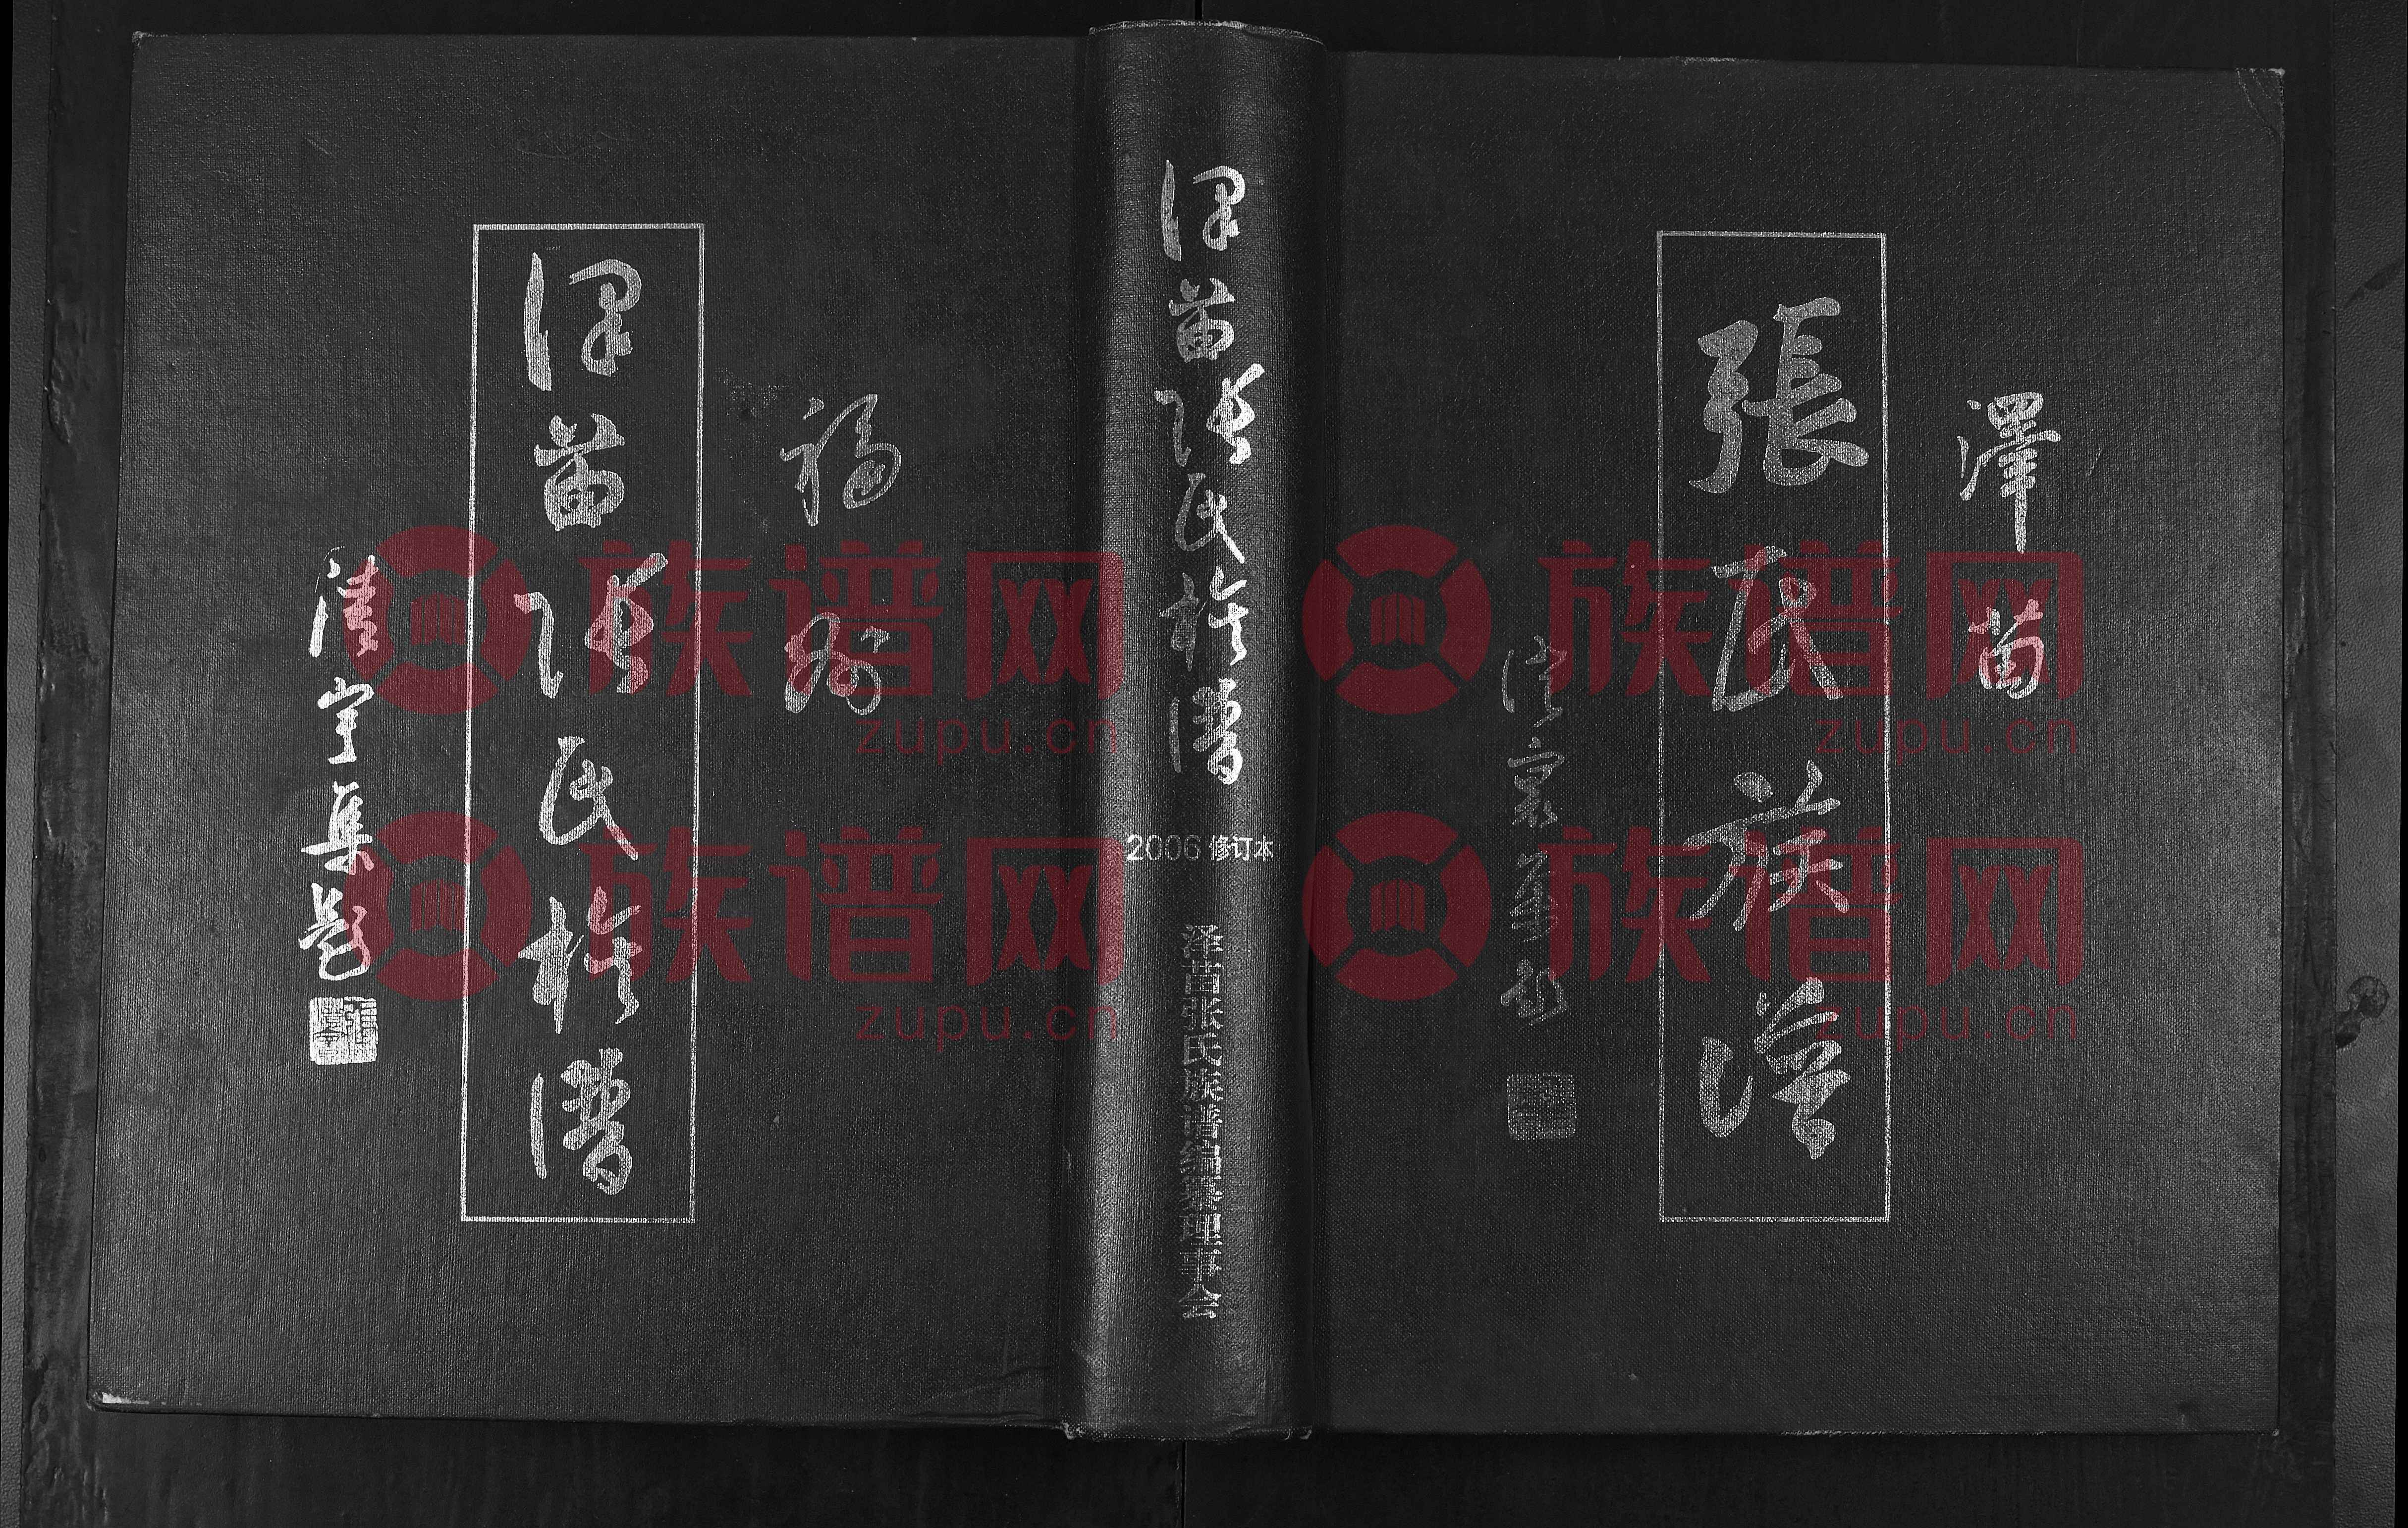 福州
泽苗张氏族譜
清宇集题
泽苗张氏族譜
2006修订本
泽苗张氏族谱编纂理事会
澤苗
張氏族譜
族谱网
zupu.cn
族谱网
zupu.cn
族谱网
zupu.cn
族谱网
zupu.cn